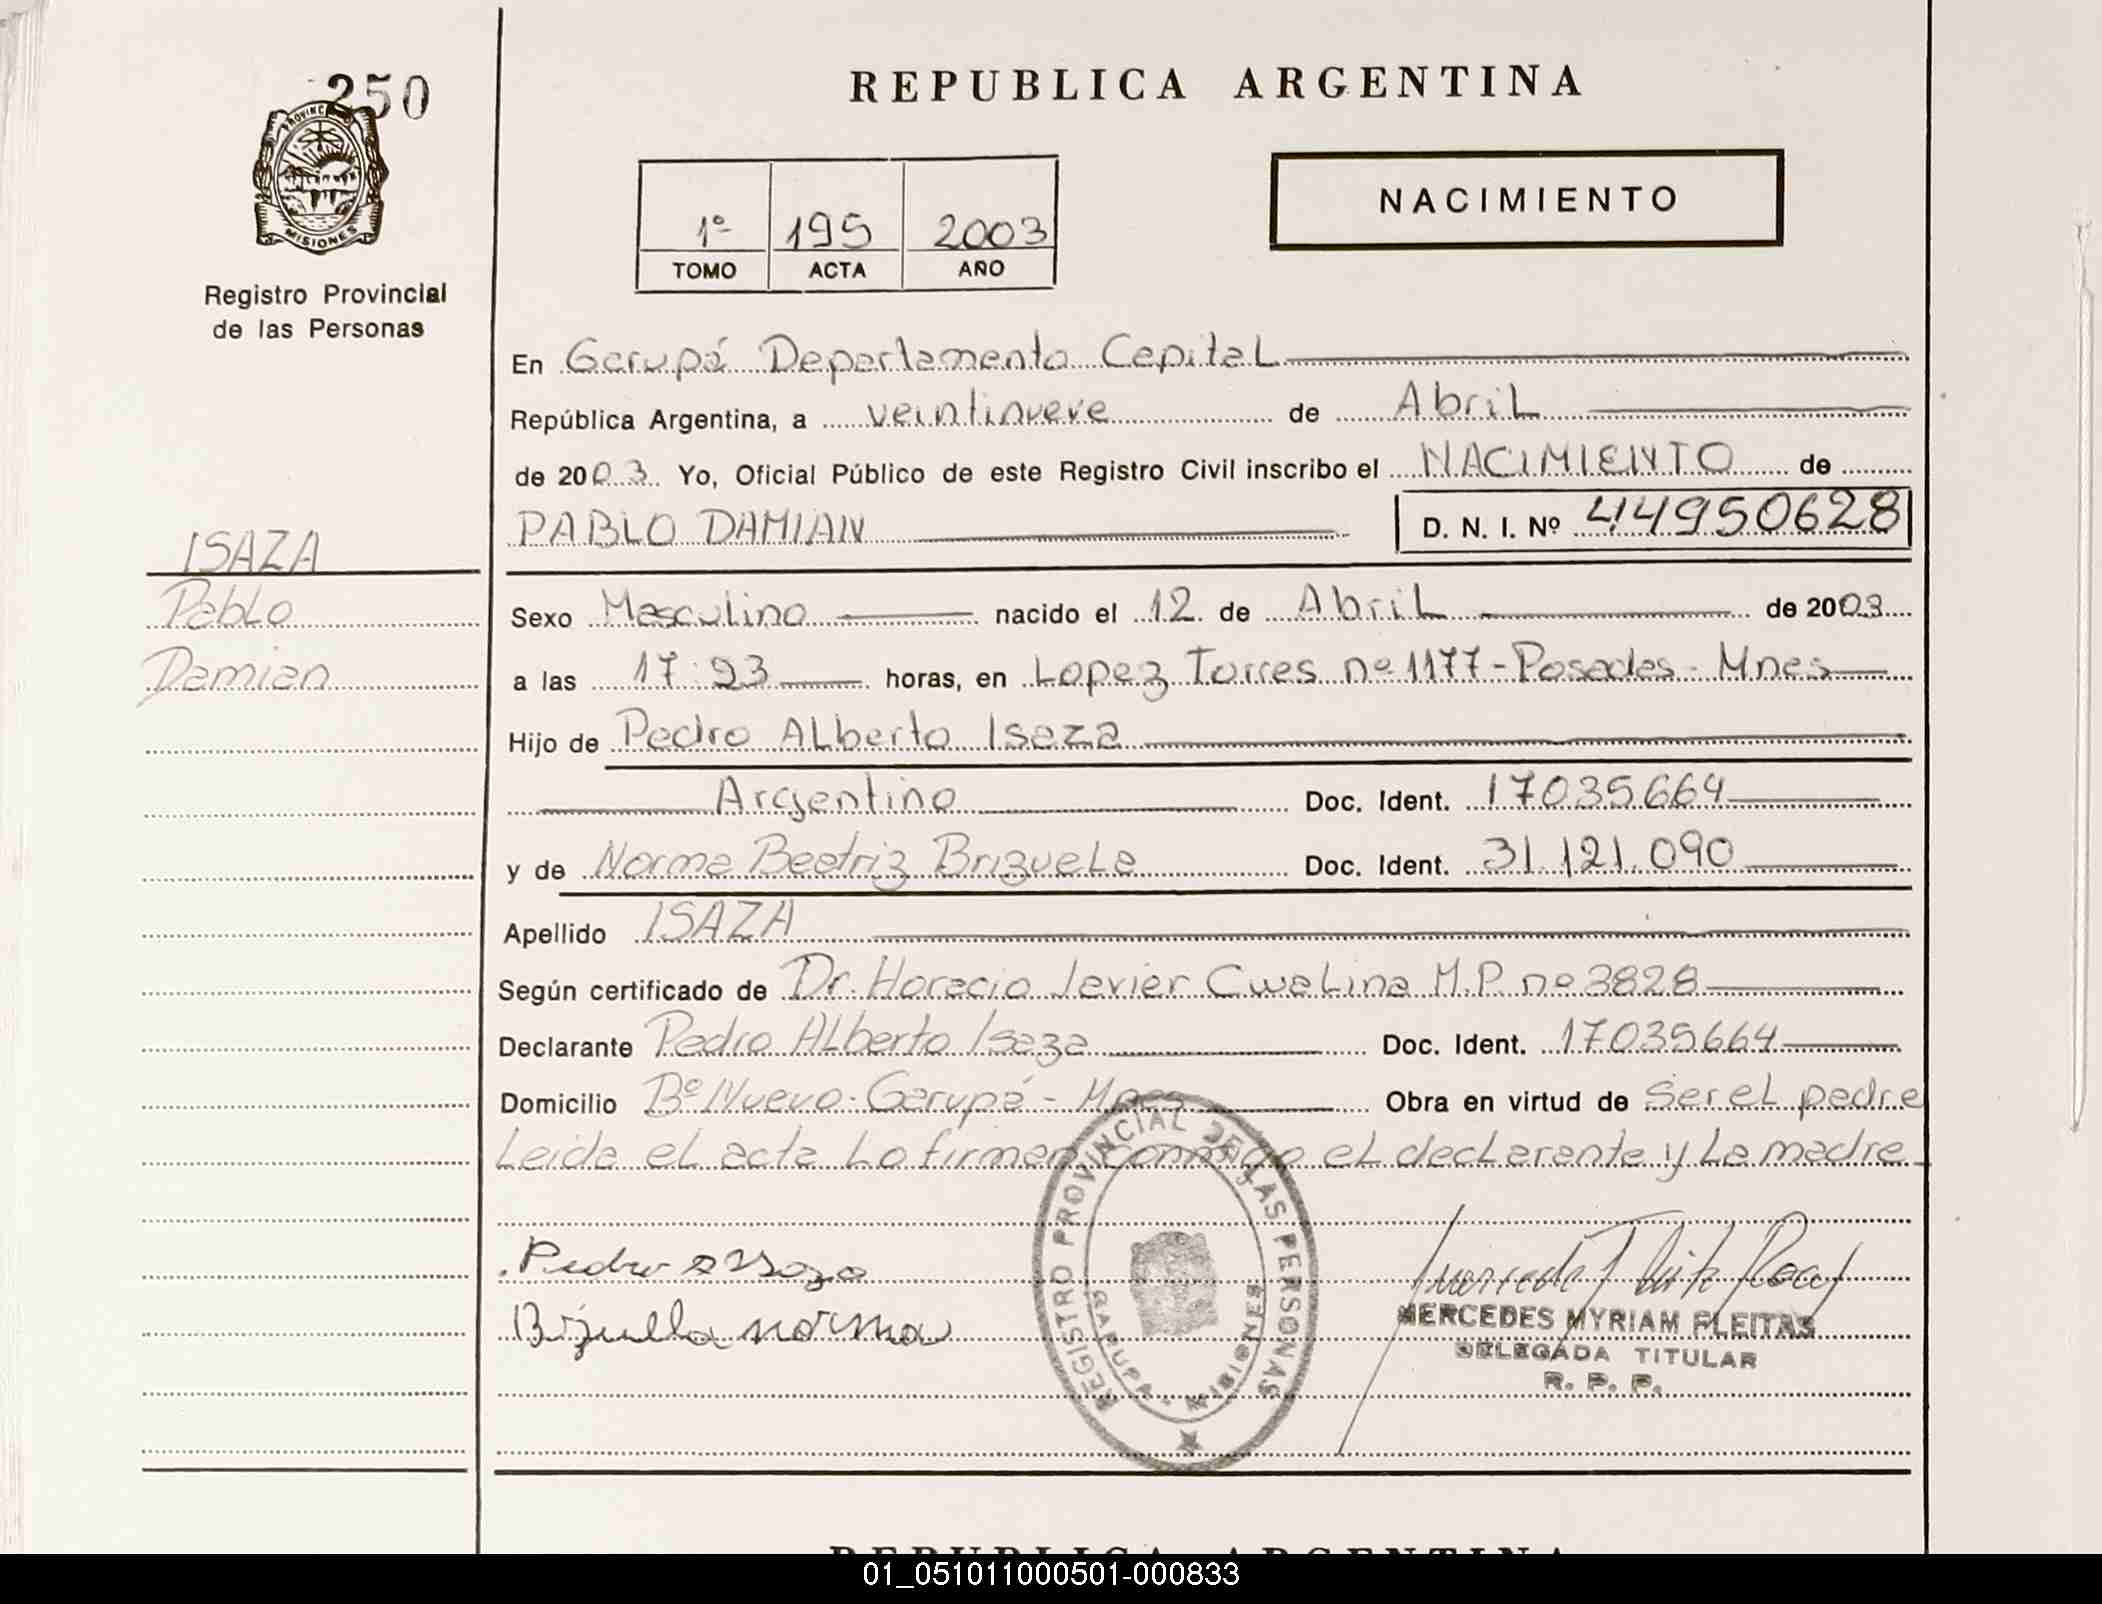 250
REPUBLICA ARGENTINA
PROVINCIA MISIONES
NACIMIENTO
1º 195 2003
TOMO ACTA AÑO
Registro Provincial
de las Personas
En Garupá Departamento Capital
República Argentina, a veintinueve de Abril
de 2003 Yo, Oficial Público de este Registro Civil inscribo el NACIMIENTO de
PABLO DAMIAN D. N. I. Nº 44950628
ISAZA
Pablo
Damian
Sexo Masculino nacido el 12 de Abril de 2003
a las 17:23 horas, en Lopez Torres nº 1177 - Posadas - Mnes
Hijo de Pedro Alberto Isaza
Argentino Doc. Ident. 17035664
y de Norma Beatriz Brizuela Doc. Ident. 31.121.090
Apellido ISAZA
Según certificado de Dr. Horacio Javier Cwalina M.P. nº 3828
Declarante Pedro Alberto Isaza Doc. Ident. 17035664
Domicilio Bº Nuevo - Garupá - Mnes Obra en virtud de ser el padre
Leida el acta lo firman conmigo el declarante y la madre
REGISTRO PROVINCIAL DE LAS PERSONAS
GARUPA - MISIONES
Pedro
norma
MERCEDES MYRIAM FLEITAS
DELEGADA TITULAR
R. P. P.
REPUBLICA ARGENTINA
01_051011000501-000833